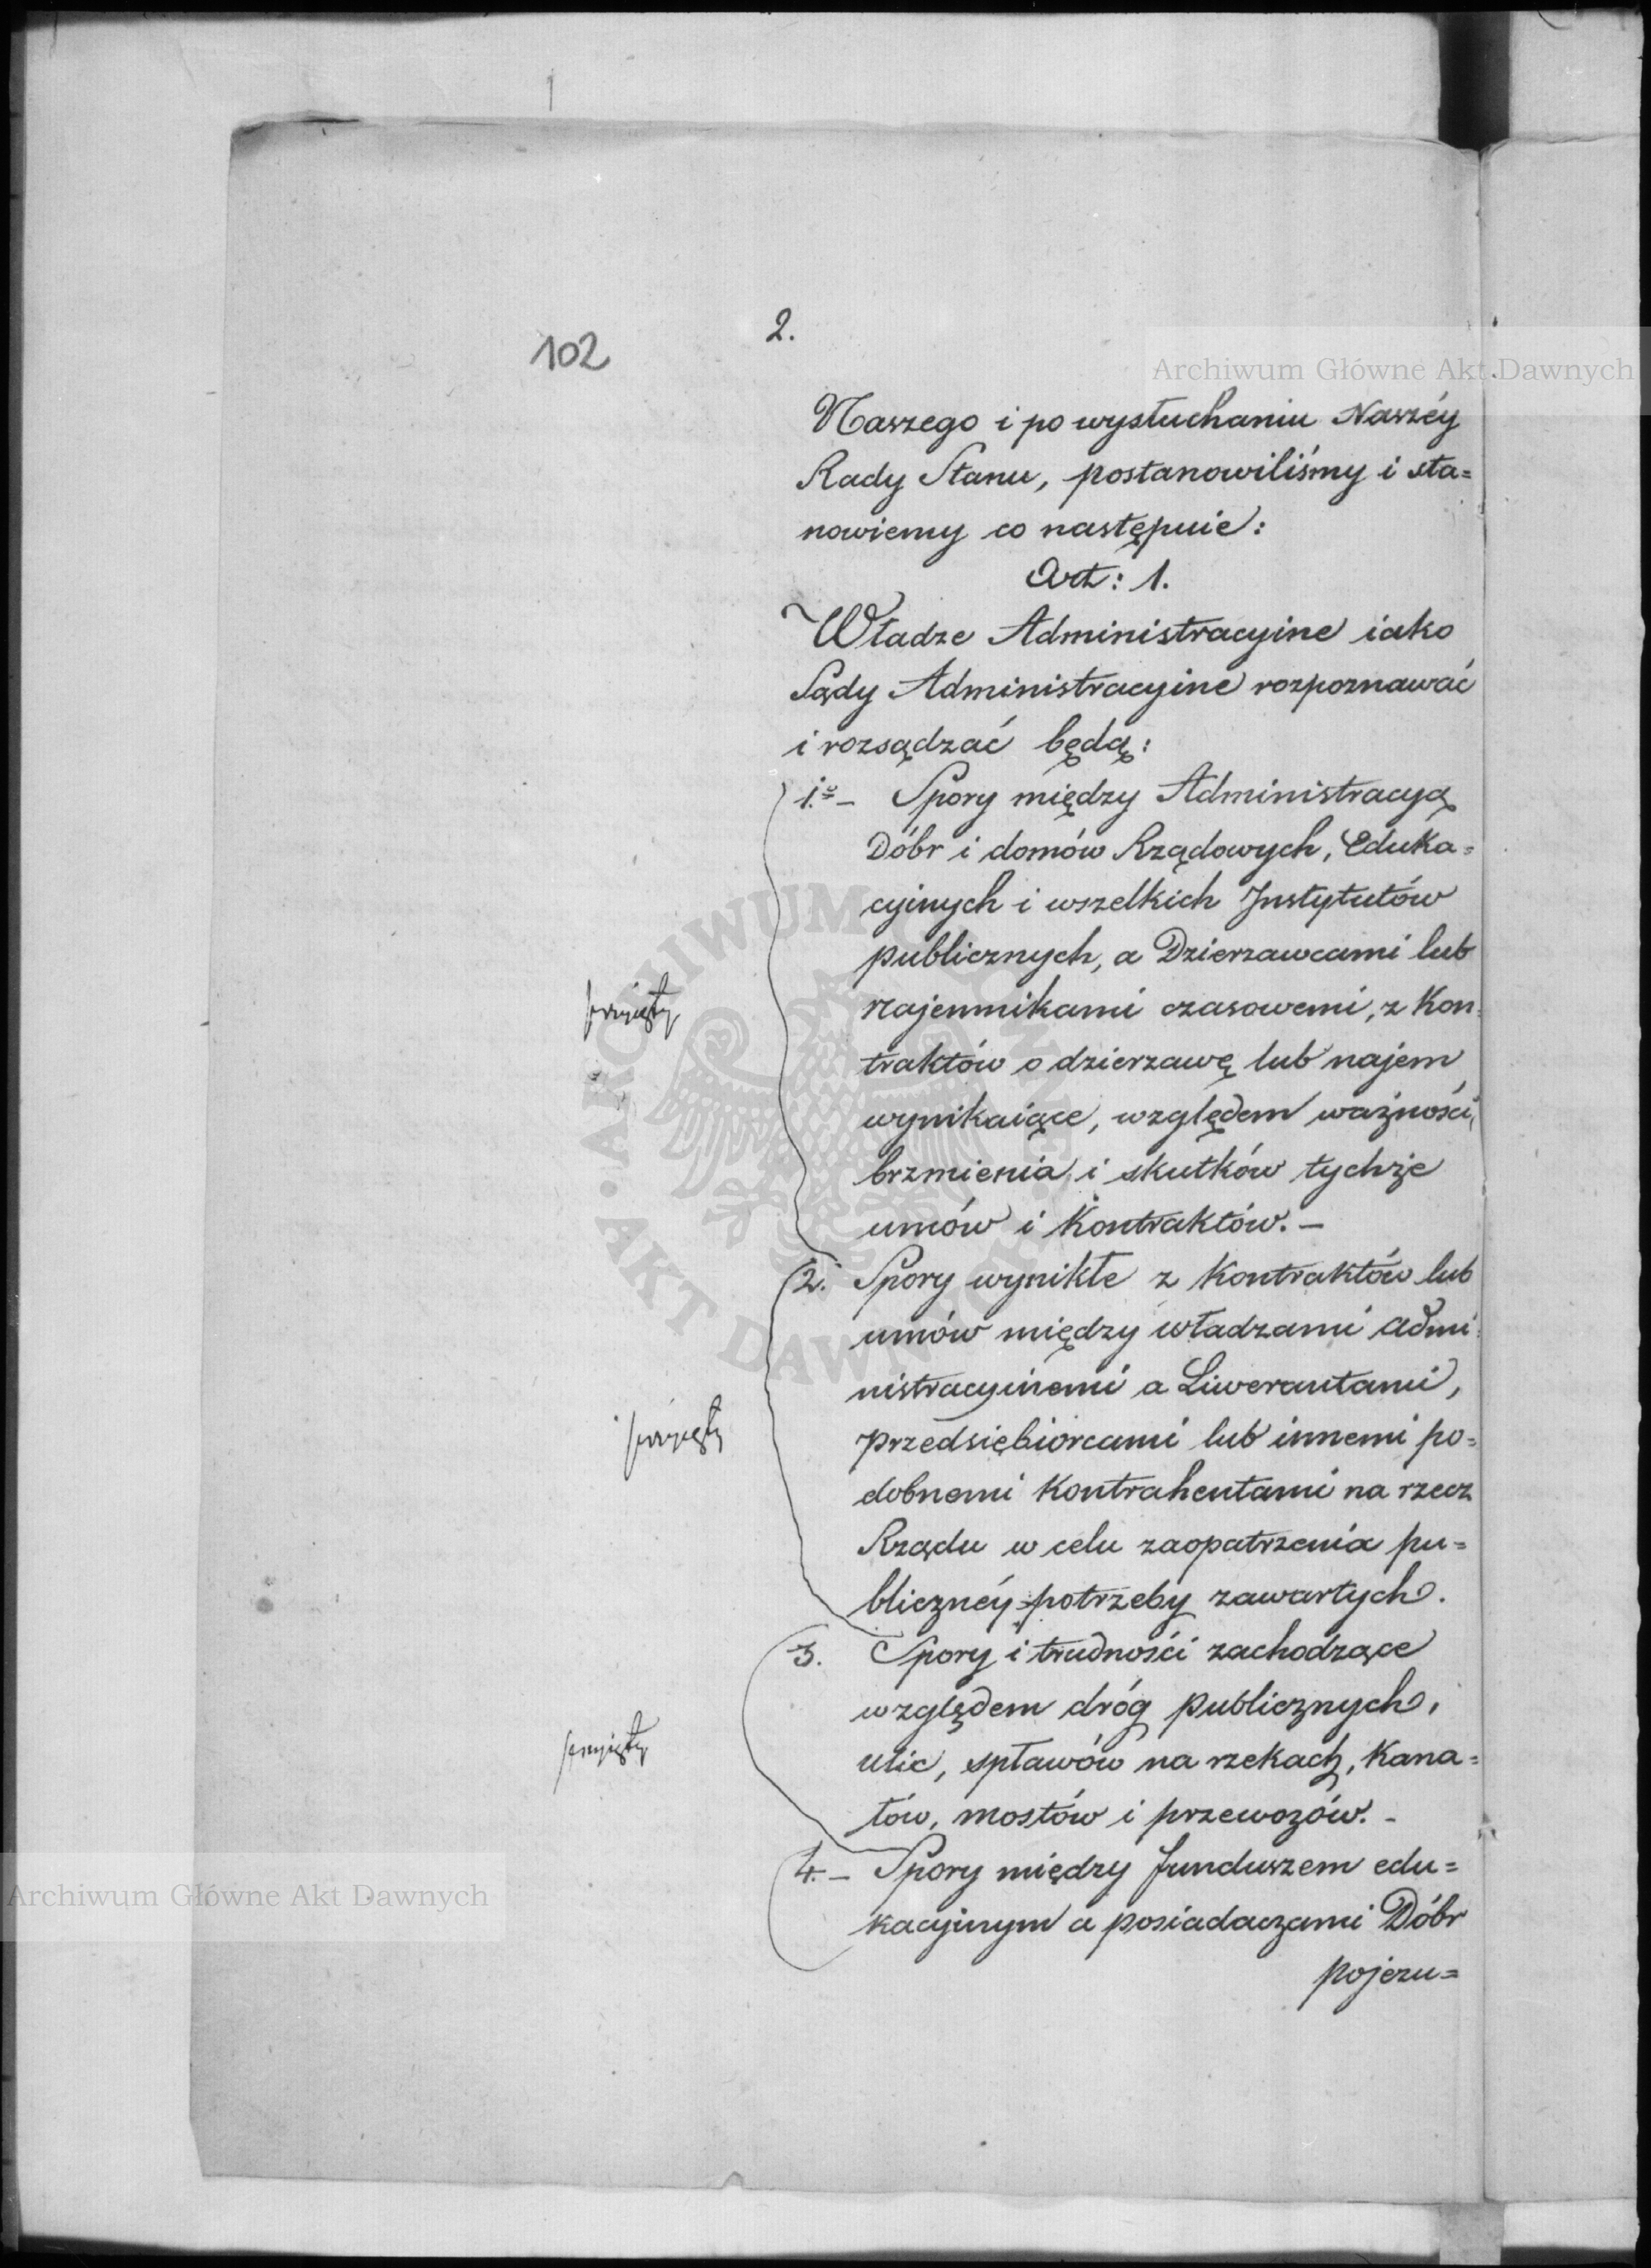 102
2.
Archiwum Główne Akt Dawnych
Naszego i po wysłuchaniu Naszéy
Rady Stanu, postanowiliśmy i sta=
nowiemy co następuie:
Art: 1.
Władze Administracyine iako
Sądy Administracyine rozpoznawać
i rozsądzać będą:
1º — Spory między Administracyą
Dóbr i domów Rządowych, Eduka=
cyinych i wszelkich Instytutów
publicznych, a Dzierzawcami lub
przyięty
najemnikami czasowemi, z Kon=
traktów o dzierzawę lub najem
wynikaiące, względem ważności,
brzmienia i skutków tychże
umów i Kontraktów. —
2. Spory wynikłe z Kontraktów lub
umów między władzami admi=
nistracyinemi a Liwerantami,
przyięty
przedsiębiorcami lub innemi po=
dobnemi Kontrahentami na rzecz
Rządu w celu zaopatrzenia pu=
blicznéy potrzeby zawartych.
3. Spory i trudności zachodzące
względem dróg publicznych,
przyięty
ulic, spławów na rzekach, Kana=
łów, mostów i przewozów. —
4. — Spory między funduszem edu=
kacyinym a posiadaczami Dóbr
pojezu=
Archiwum Główne Akt Dawnych
ARCHIWUM GŁÓWNE AKT DAWNYCH